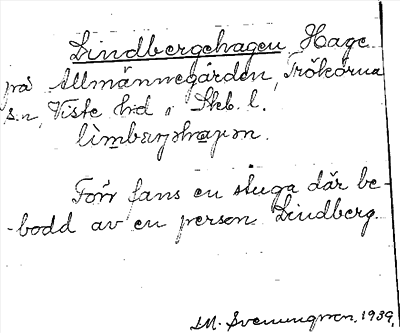 Lindbergehagen, Hage
på Allmännegården, Trökörna
s.n, Viste hd, Skb. l.
limbæryshagan.
Förr fans en stuga där be-
-bodd av en person Lindberg.
M. Svenungson. 1939.